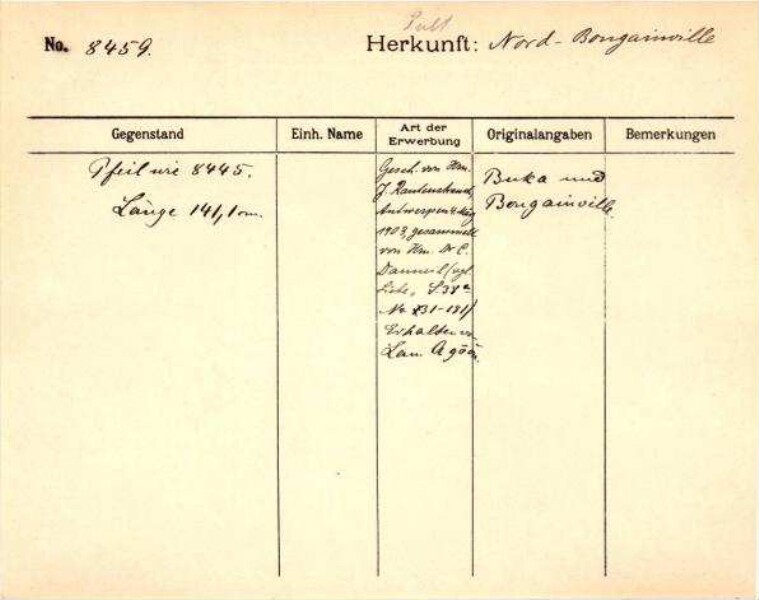 No. 8459. Herkunft: Nord-Bougainville
Gegenstand Einh. Name Art der Erwerbung Originalangaben Bemerkungen
Pfeil wie 8445.
Länge 141,1 cm.
Gesch. von Hrn.
J. Rautenstrauch,
Antwerpen
1903, gesammelt
von Hrn. Dr C.
Danneil (vgl.
Liste, S.
No 131-181)
Erhalten
Lau.
Buka und
Bougainville.